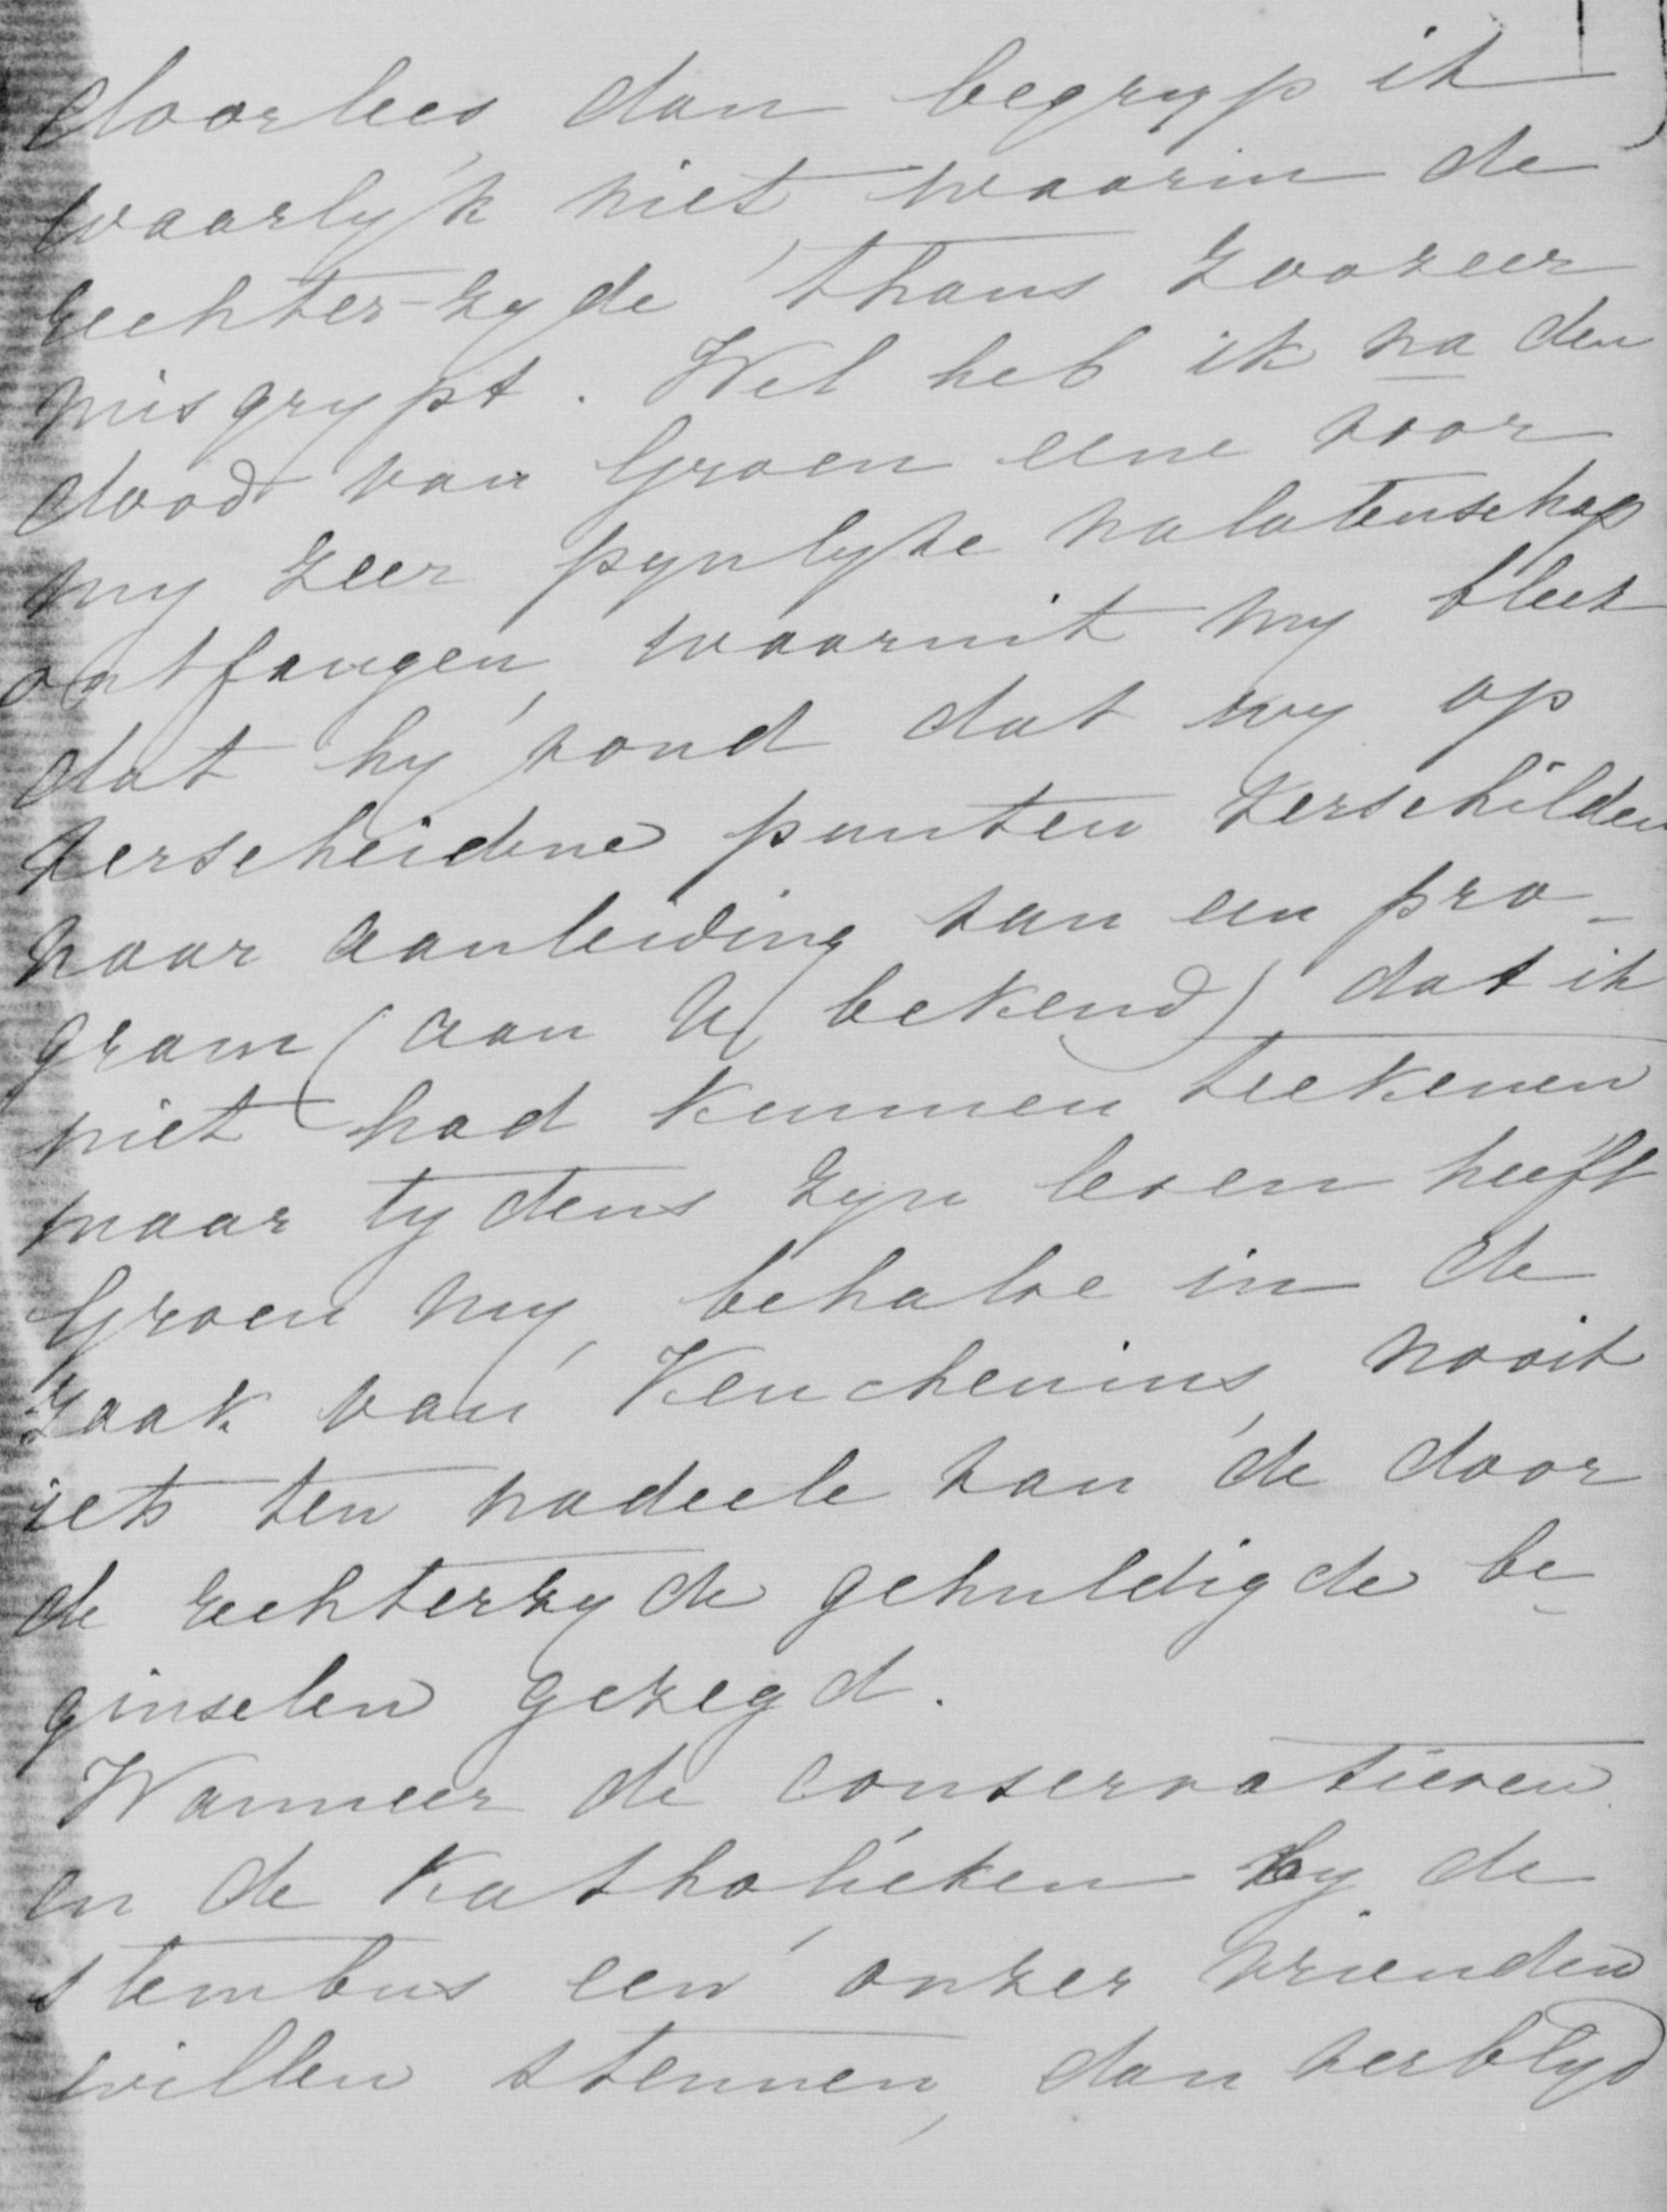 doorlees, dan begryp ik
waarlyk niet, waarin de
rechter-zyde thans zoozeer
misgrypt. Wel heb ik na den
dood van Groen eene voor
my zeer pynlyke nalatenschap
ontfangen, waaruit my bleek
dat hy vond dat wy op
verscheidene punten verschilden
naar aanleiding van een pro-
gram (aan U bekend) dat ik
niet had kunnen teekenen
maar tydens zyn leven heeft
Groen my, behalve in de
zaak van Keuchenius, nooit
iets ten nadeele van de door
de rechterzyde gehuldigde be-
ginselen gezegd.
Wanneer de conservatieven
en de Katholieken by de
stembus een onzer vrienden
willen stemmen, dan verblyd